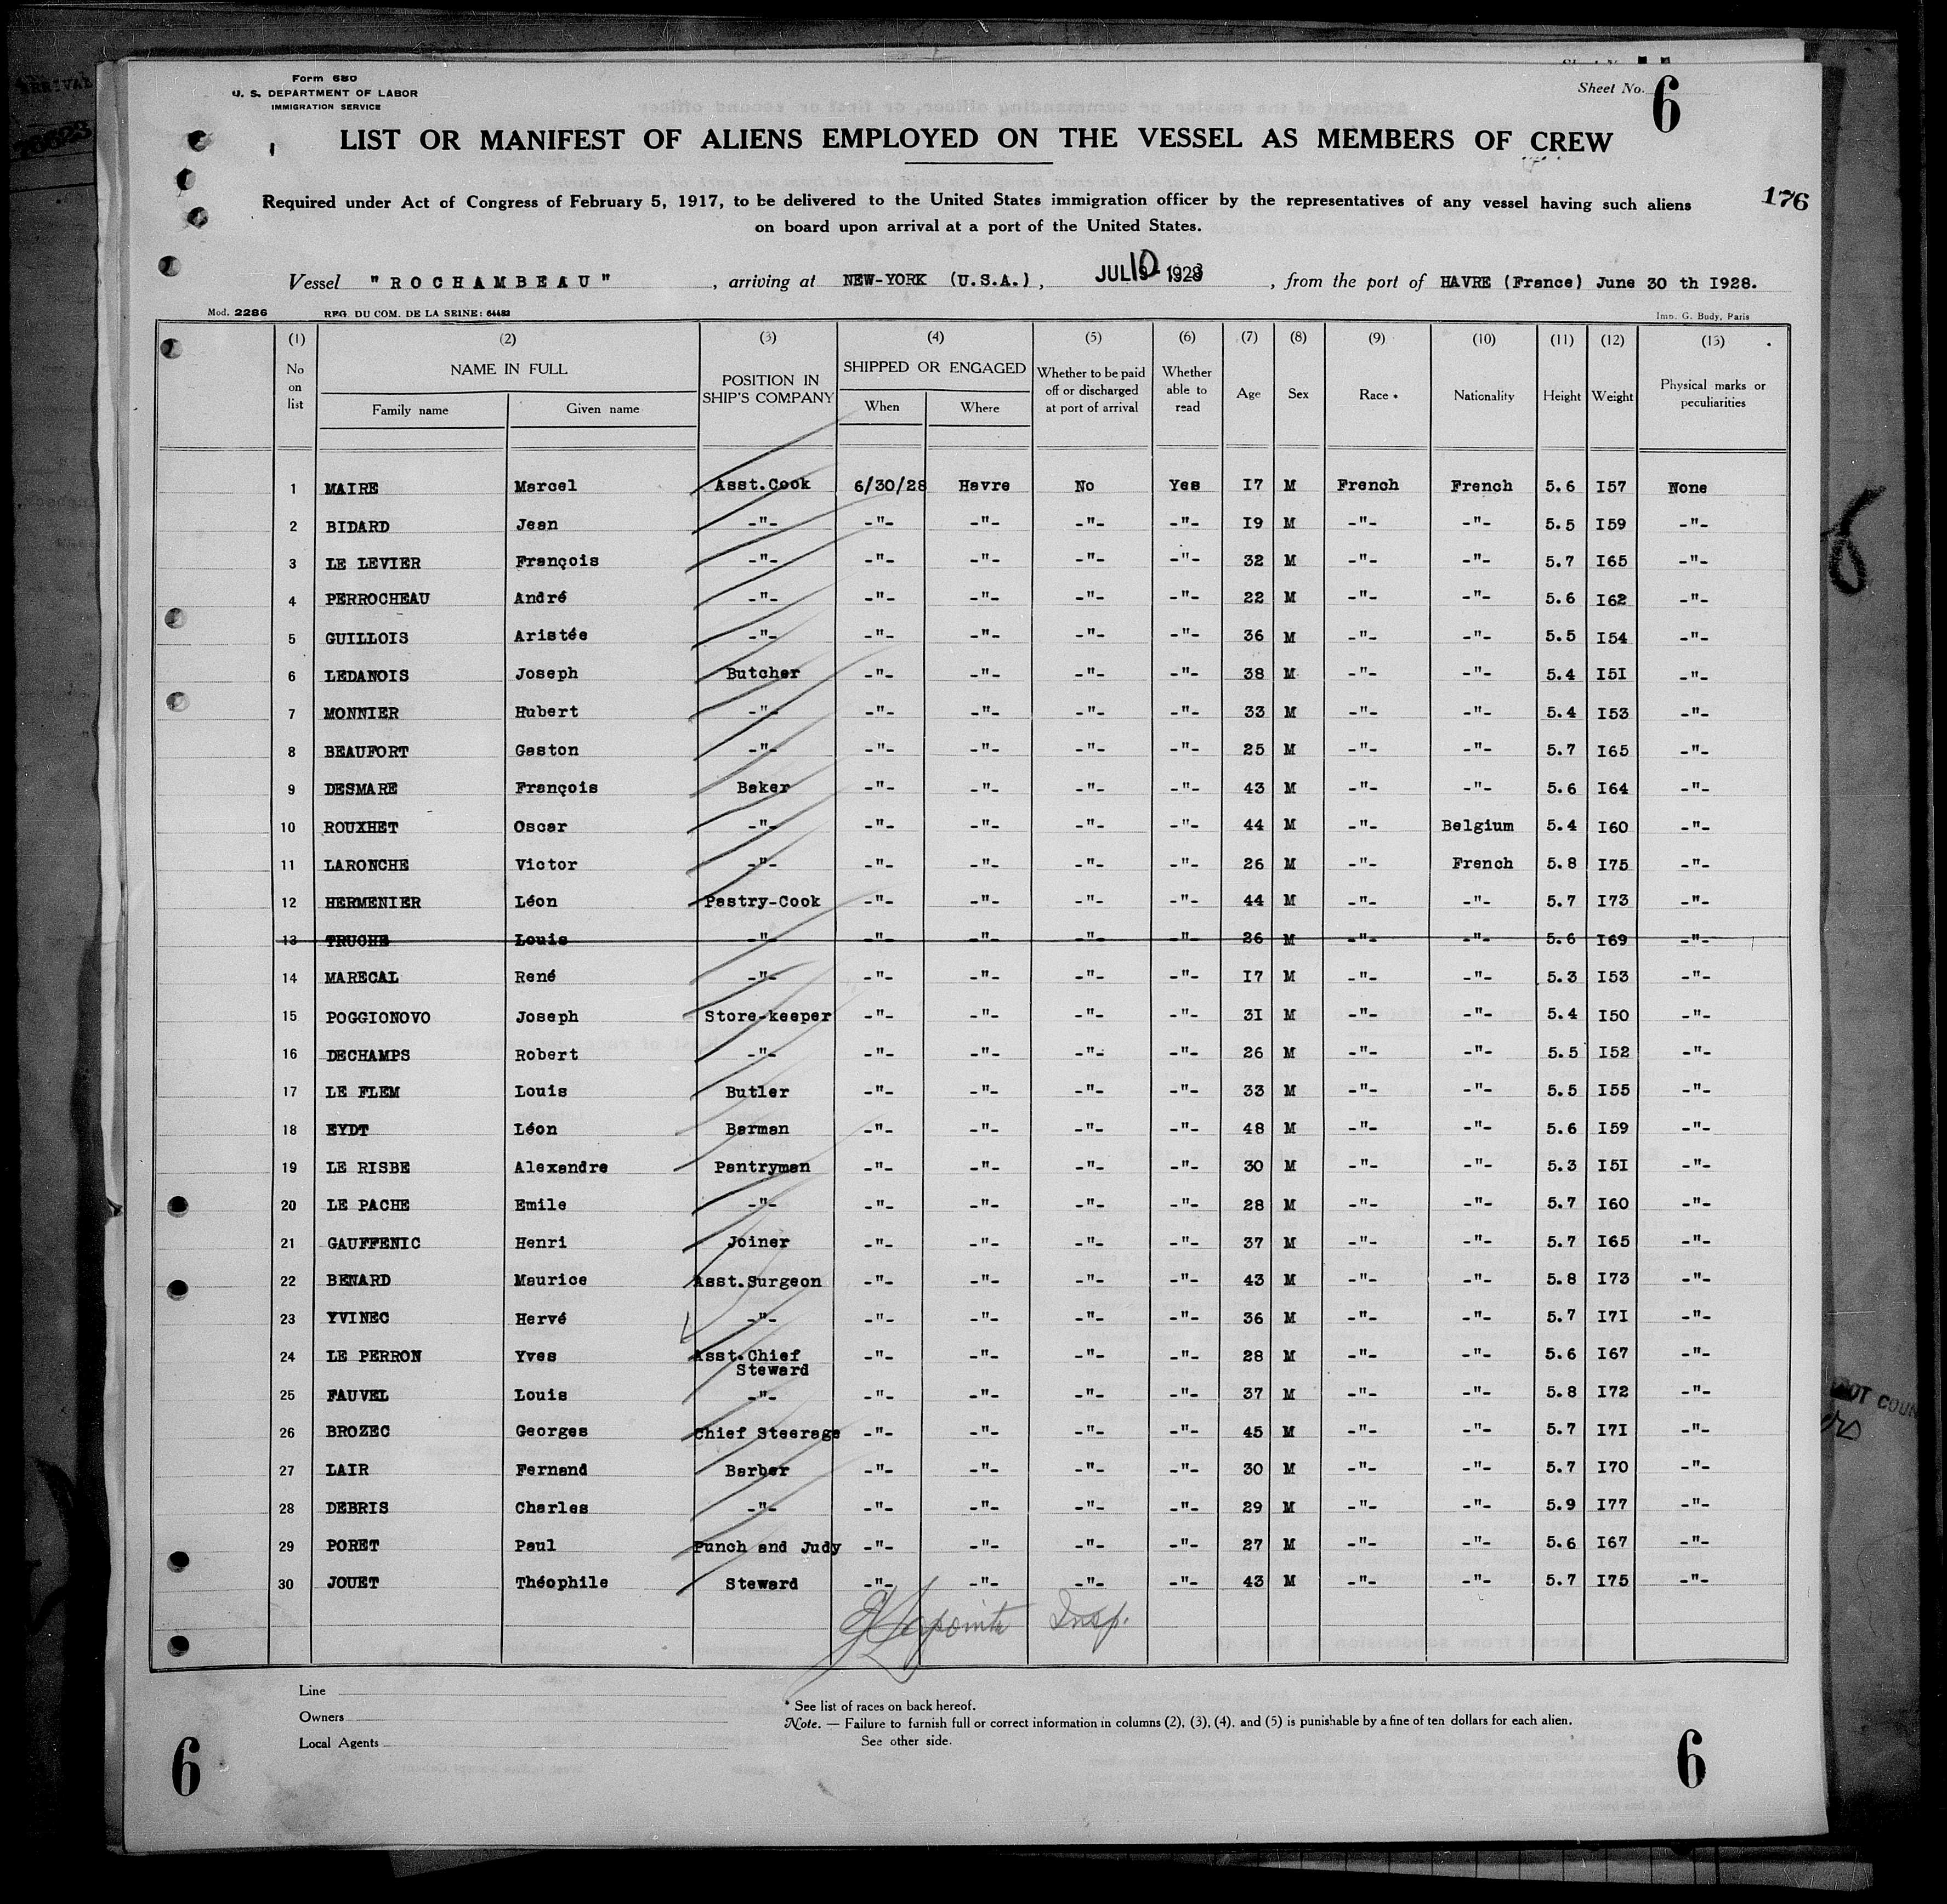 Form 680
U. S. DEPARTMENT OF LABOR
IMMIGRATION SERVICE
Sheet No. 6
LIST OR MANIFEST OF ALIENS EMPLOYED ON THE VESSEL AS MEMBERS OF CREW
176
Required under Act of Congress of February 5, 1917, to be delivered to the United States immigration officer by the representatives of any vessel having such aliens
on board upon arrival at a port of the United States.
Vessel "ROCHAMBEAU", arriving at NEW-YORK (U.S.A.), JUL 10 1928, from the port of HAVRE (France) June 30 th I928.
Mod. 2286 REG. DU COM. DE LA SEINE: 64482 Imp. G. Budy, Paris
(1) (2) (3) (4) (5) (6) (7) (8) (9) (10) (11) (12) (13)
No on list NAME IN FULL Family name Given name POSITION IN SHIP'S COMPANY SHIPPED OR ENGAGED When Where Whether to be paid off or discharged at port of arrival Whether able to read Age Sex Race * Nationality Height Weight Physical marks or peculiarities
1 MAIRE Marcel Asst.Cook 6/30/28 Havre No Yes I7 M French French 5.6 I57 None
2 BIDARD Jean -"- -"- -"- -"- -"- I9 M -"- -"- 5.5 I59 -"-
3 LE LEVIER François -"- -"- -"- -"- -"- 32 M -"- -"- 5.7 I65 -"-
4 PERROCHEAU André -"- -"- -"- -"- -"- 22 M -"- -"- 5.6 I62 -"-
5 GUILLOIS Aristée -"- -"- -"- -"- -"- 36 M -"- -"- 5.5 I54 -"-
6 LEDANOIS Joseph Butcher -"- -"- -"- -"- 38 M -"- -"- 5.4 I5I -"-
7 MONNIER Hubert -"- -"- -"- -"- -"- 33 M -"- -"- 5.4 I53 -"-
8 BEAUFORT Gaston -"- -"- -"- -"- -"- 25 M -"- -"- 5.7 I65 -"-
9 DESMARE François Baker -"- -"- -"- -"- 43 M -"- -"- 5.6 I64 -"-
10 ROUXHET Oscar -"- -"- -"- -"- -"- 44 M -"- Belgium 5.4 I60 -"-
11 LARONCHE Victor -"- -"- -"- -"- -"- 26 M -"- French 5.8 I75 -"-
12 HERMENIER Léon Pastry-Cook -"- -"- -"- -"- 44 M -"- -"- 5.7 I73 -"-
13 TRUCHE Louis -"- -"- -"- -"- -"- 26 M -"- -"- 5.6 I69 -"-
14 MARECAL René -"- -"- -"- -"- -"- I7 M -"- -"- 5.3 I53 -"-
15 POGGIONOVO Joseph Store-keeper -"- -"- -"- -"- 3I M -"- -"- 5.4 I50 -"-
16 DECHAMPS Robert -"- -"- -"- -"- -"- 26 M -"- -"- 5.5 I52 -"-
17 LE FLEM Louis Butler -"- -"- -"- -"- 33 M -"- -"- 5.5 I55 -"-
18 EYDT Léon Barman -"- -"- -"- -"- 48 M -"- -"- 5.6 I59 -"-
19 LE RISBE Alexandre Pantryman -"- -"- -"- -"- 30 M -"- -"- 5.3 I5I -"-
20 LE PACHE Emile -"- -"- -"- -"- -"- 28 M -"- -"- 5.7 I60 -"-
21 GAUFFENIC Henri Joiner -"- -"- -"- -"- 37 M -"- -"- 5.7 I65 -"-
22 BENARD Maurice Asst.Surgeon -"- -"- -"- -"- 43 M -"- -"- 5.8 I73 -"-
23 YVINEC Hervé -"- -"- -"- -"- -"- 36 M -"- -"- 5.7 I7I -"-
24 LE PERRON Yves Asst.Chief Steward -"- -"- -"- -"- 28 M -"- -"- 5.6 I67 -"-
25 FAUVEL Louis -"- -"- -"- -"- -"- 37 M -"- -"- 5.8 I72 -"-
26 BROZEC Georges Chief Steerage -"- -"- -"- -"- 45 M -"- -"- 5.7 I7I -"-
27 LAIR Fernand Barber -"- -"- -"- -"- 30 M -"- -"- 5.7 I70 -"-
28 DEBRIS Charles -"- -"- -"- -"- -"- 29 M -"- -"- 5.9 I77 -"-
29 PORET Paul Punch and Judy -"- -"- -"- -"- 27 M -"- -"- 5.6 I67 -"-
30 JOUET Théophile Steward -"- -"- -"- -"- 43 M -"- -"- 5.7 I75 -"-
Insp.
Line
Owners
Local Agents
* See list of races on back hereof.
Note. — Failure to furnish full or correct information in columns (2), (3), (4), and (5) is punishable by a fine of ten dollars for each alien.
See other side.
6 6